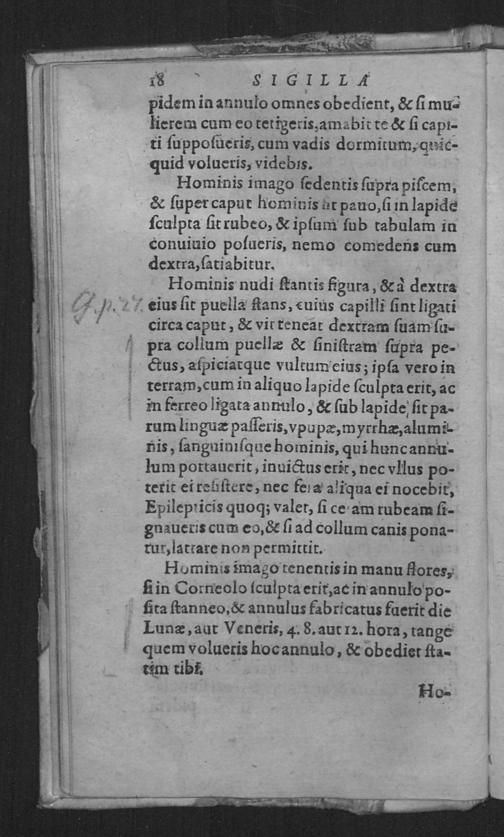 18 SIGILLA
pidem in annulo omnes obedient, & ſi mu-
lierem cum eo tetigeris, amabit te & ſi capi-
ti ſuppoſueris, cum vadis dormitum, quic-
quid volueris, videbis.
Hominis imago ſedentis ſupra piſcem,
& ſuper caput hominis ſit pauo, ſi in lapide
ſculpta ſit rubeo, & ipſum ſub tabulam in
conuiuio poſueris, nemo comedens cum
dextra, ſatiabitur.
Hominis nudi ſtantis figura, & à dextra
eius ſit puella ſtans, cuius capilli ſint ligati
circa caput, & vir teneat dextram ſuam ſu-
pra collum puellæ & ſiniſtram ſupra pe-
ctus, aſpiciatque vultum eius; ipſa vero in
terram, cum in aliquo lapide ſculpta erit, ac
in ferreo ligata annulo, & ſub lapide, ſit pa-
rum linguæ paſſeris, vpupæ, myrrhæ, alumi-
nis, ſanguiniſque hominis, qui hunc annu-
lum portauerit, inuictus erit, nec vllus po-
terit ei reſiſtere, nec fera aliqua ei nocebit,
Epilepticis quoq; valet, ſi ceram rubeam ſi-
gnaueris cum eo, & ſi ad collum canis pona-
tur, latrare non permittit.
Hominis imago tenentis in manu flores,
ſi in Corneolo ſculpta erit, ac in annulo po-
ſita ſtanneo, & annulus fabricatus fuerit die
Lunæ, aut Veneris, 4. 8. aut 12. hora, tange
quem volueris hoc annulo, & obediet ſta-
tim tibi.
Ho-
p. 27.